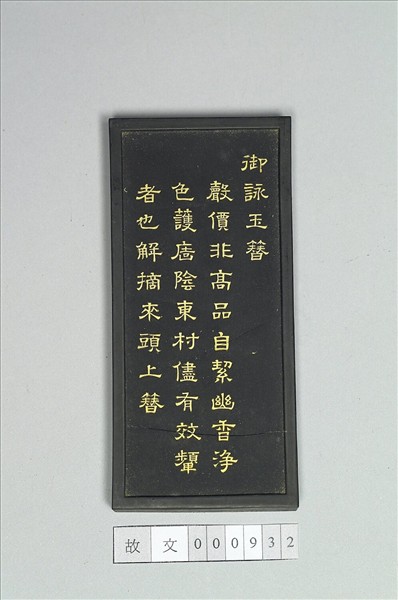 御詠玉簪
聲價非高品自絜幽香浄
色護廧陰東村儘有效顰
者也解摘來頭上簪
故文000932